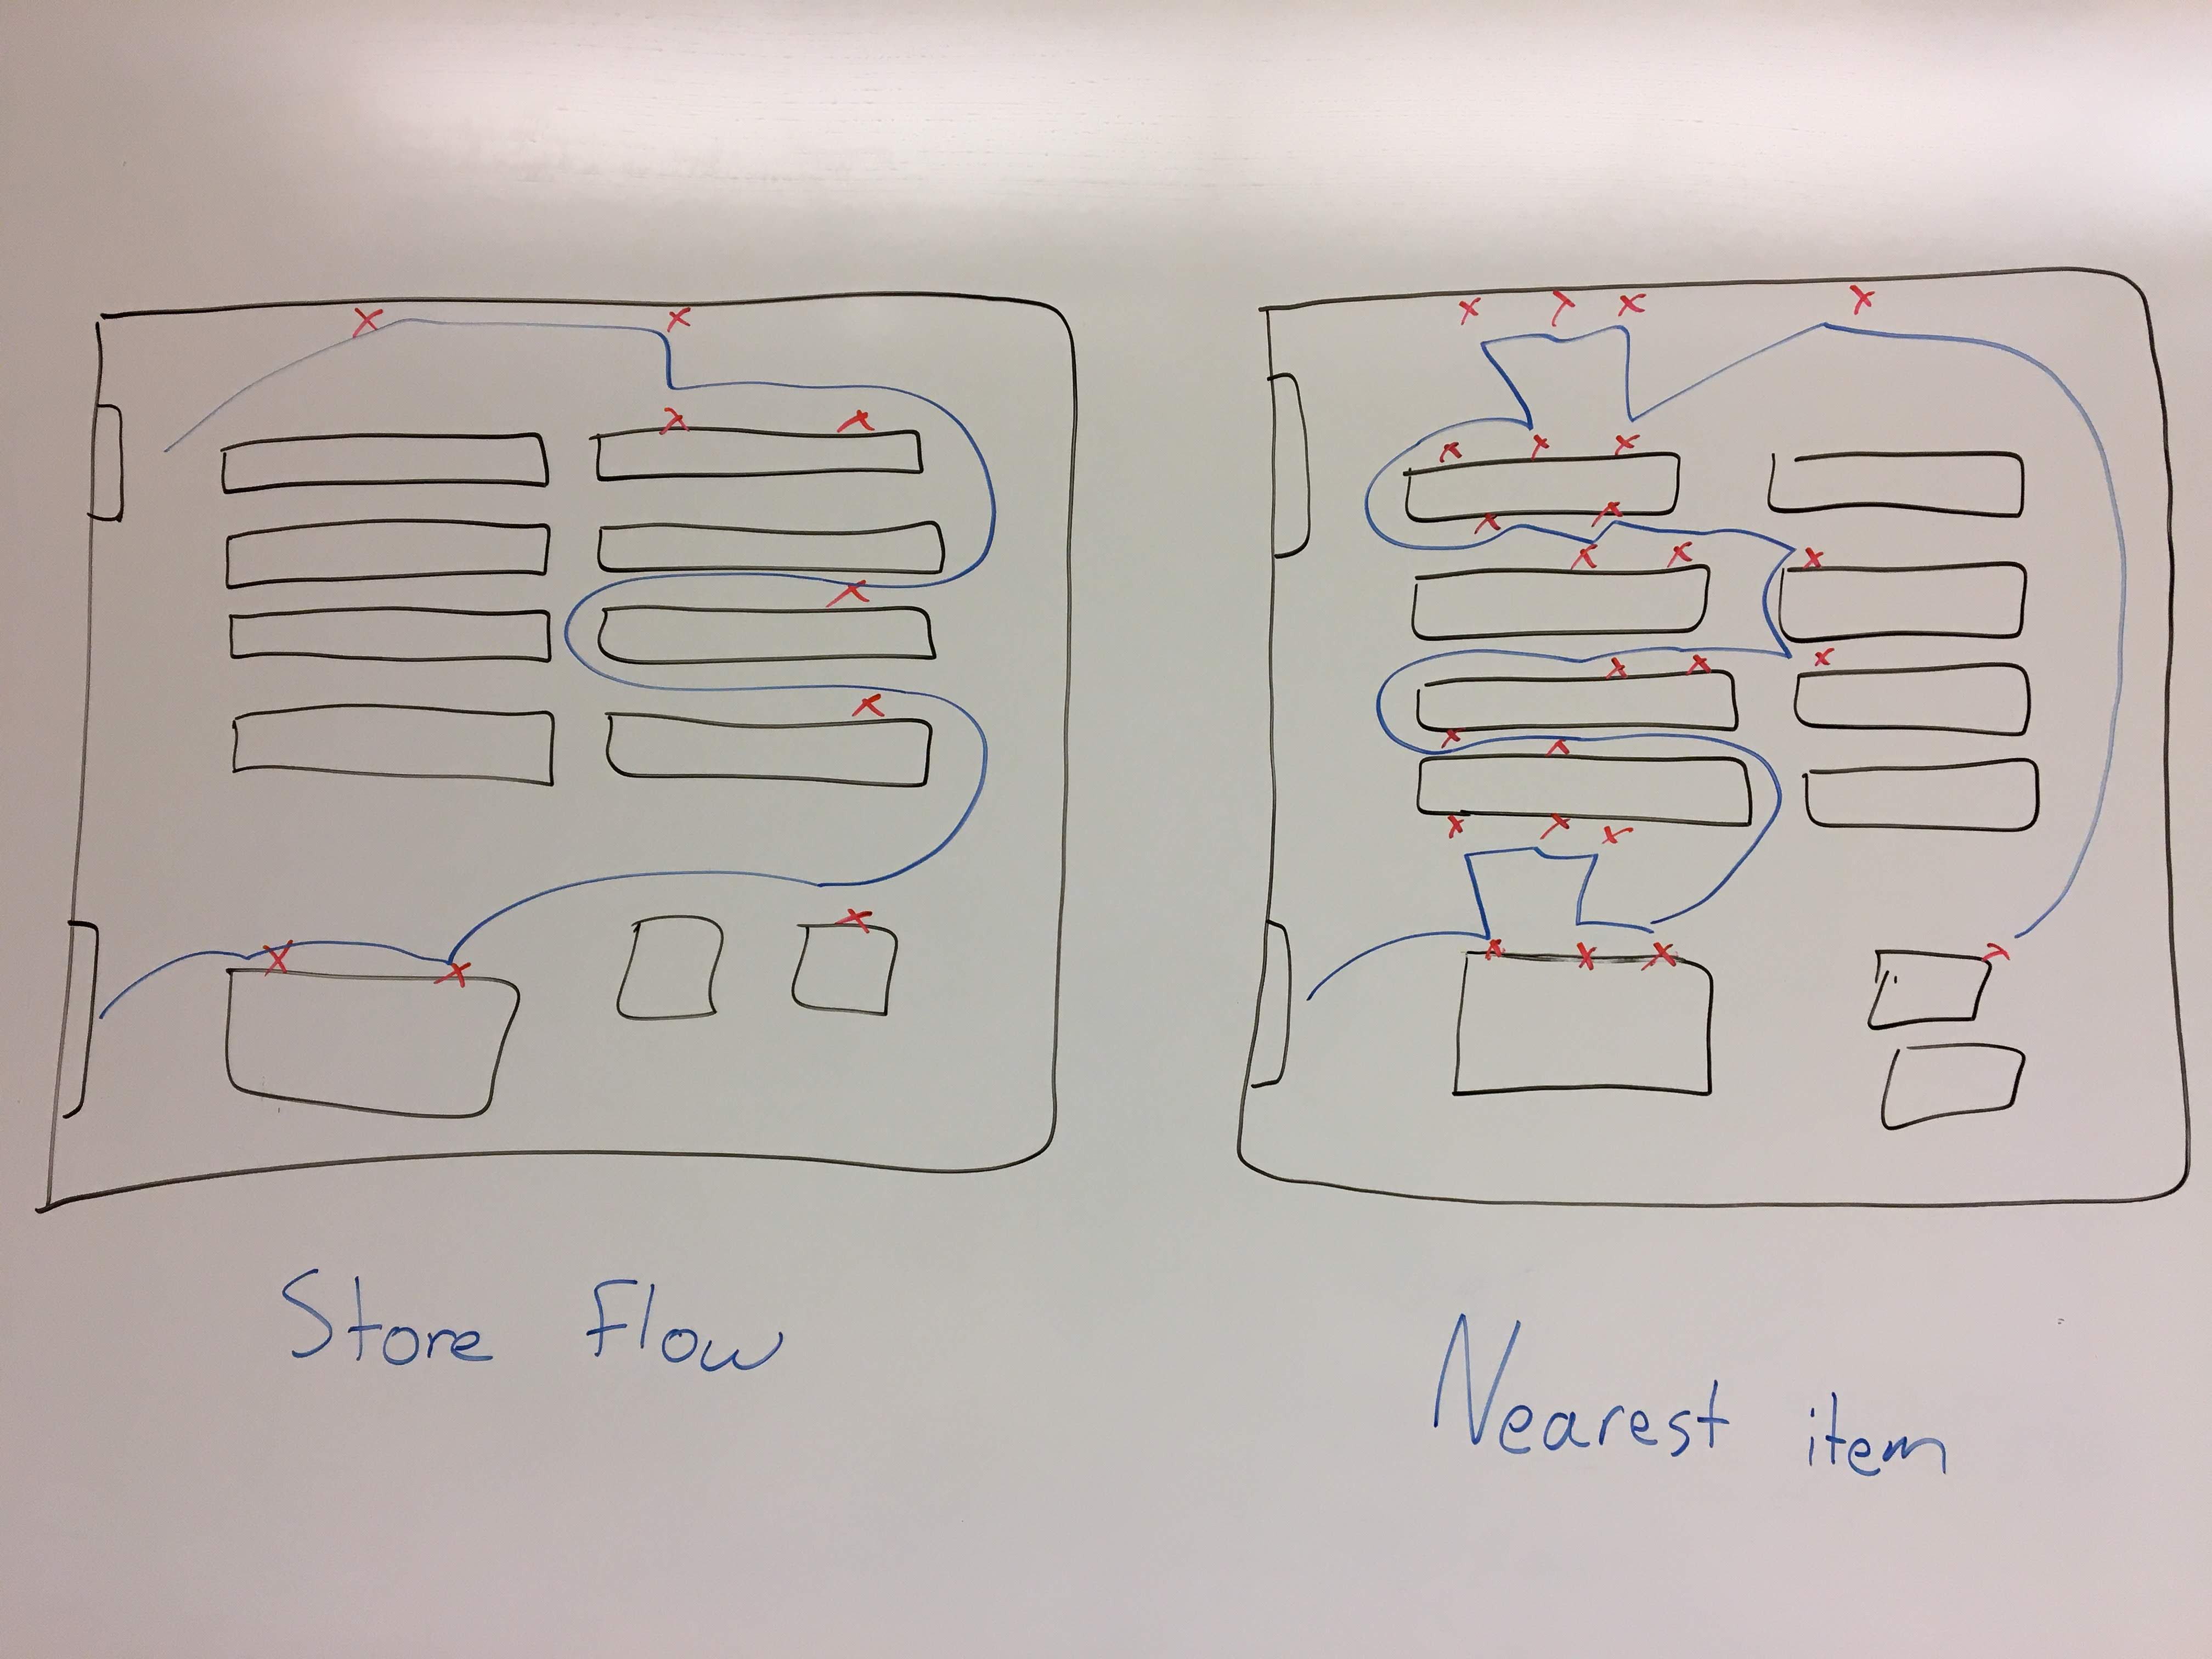 Store Flow
Nearest item